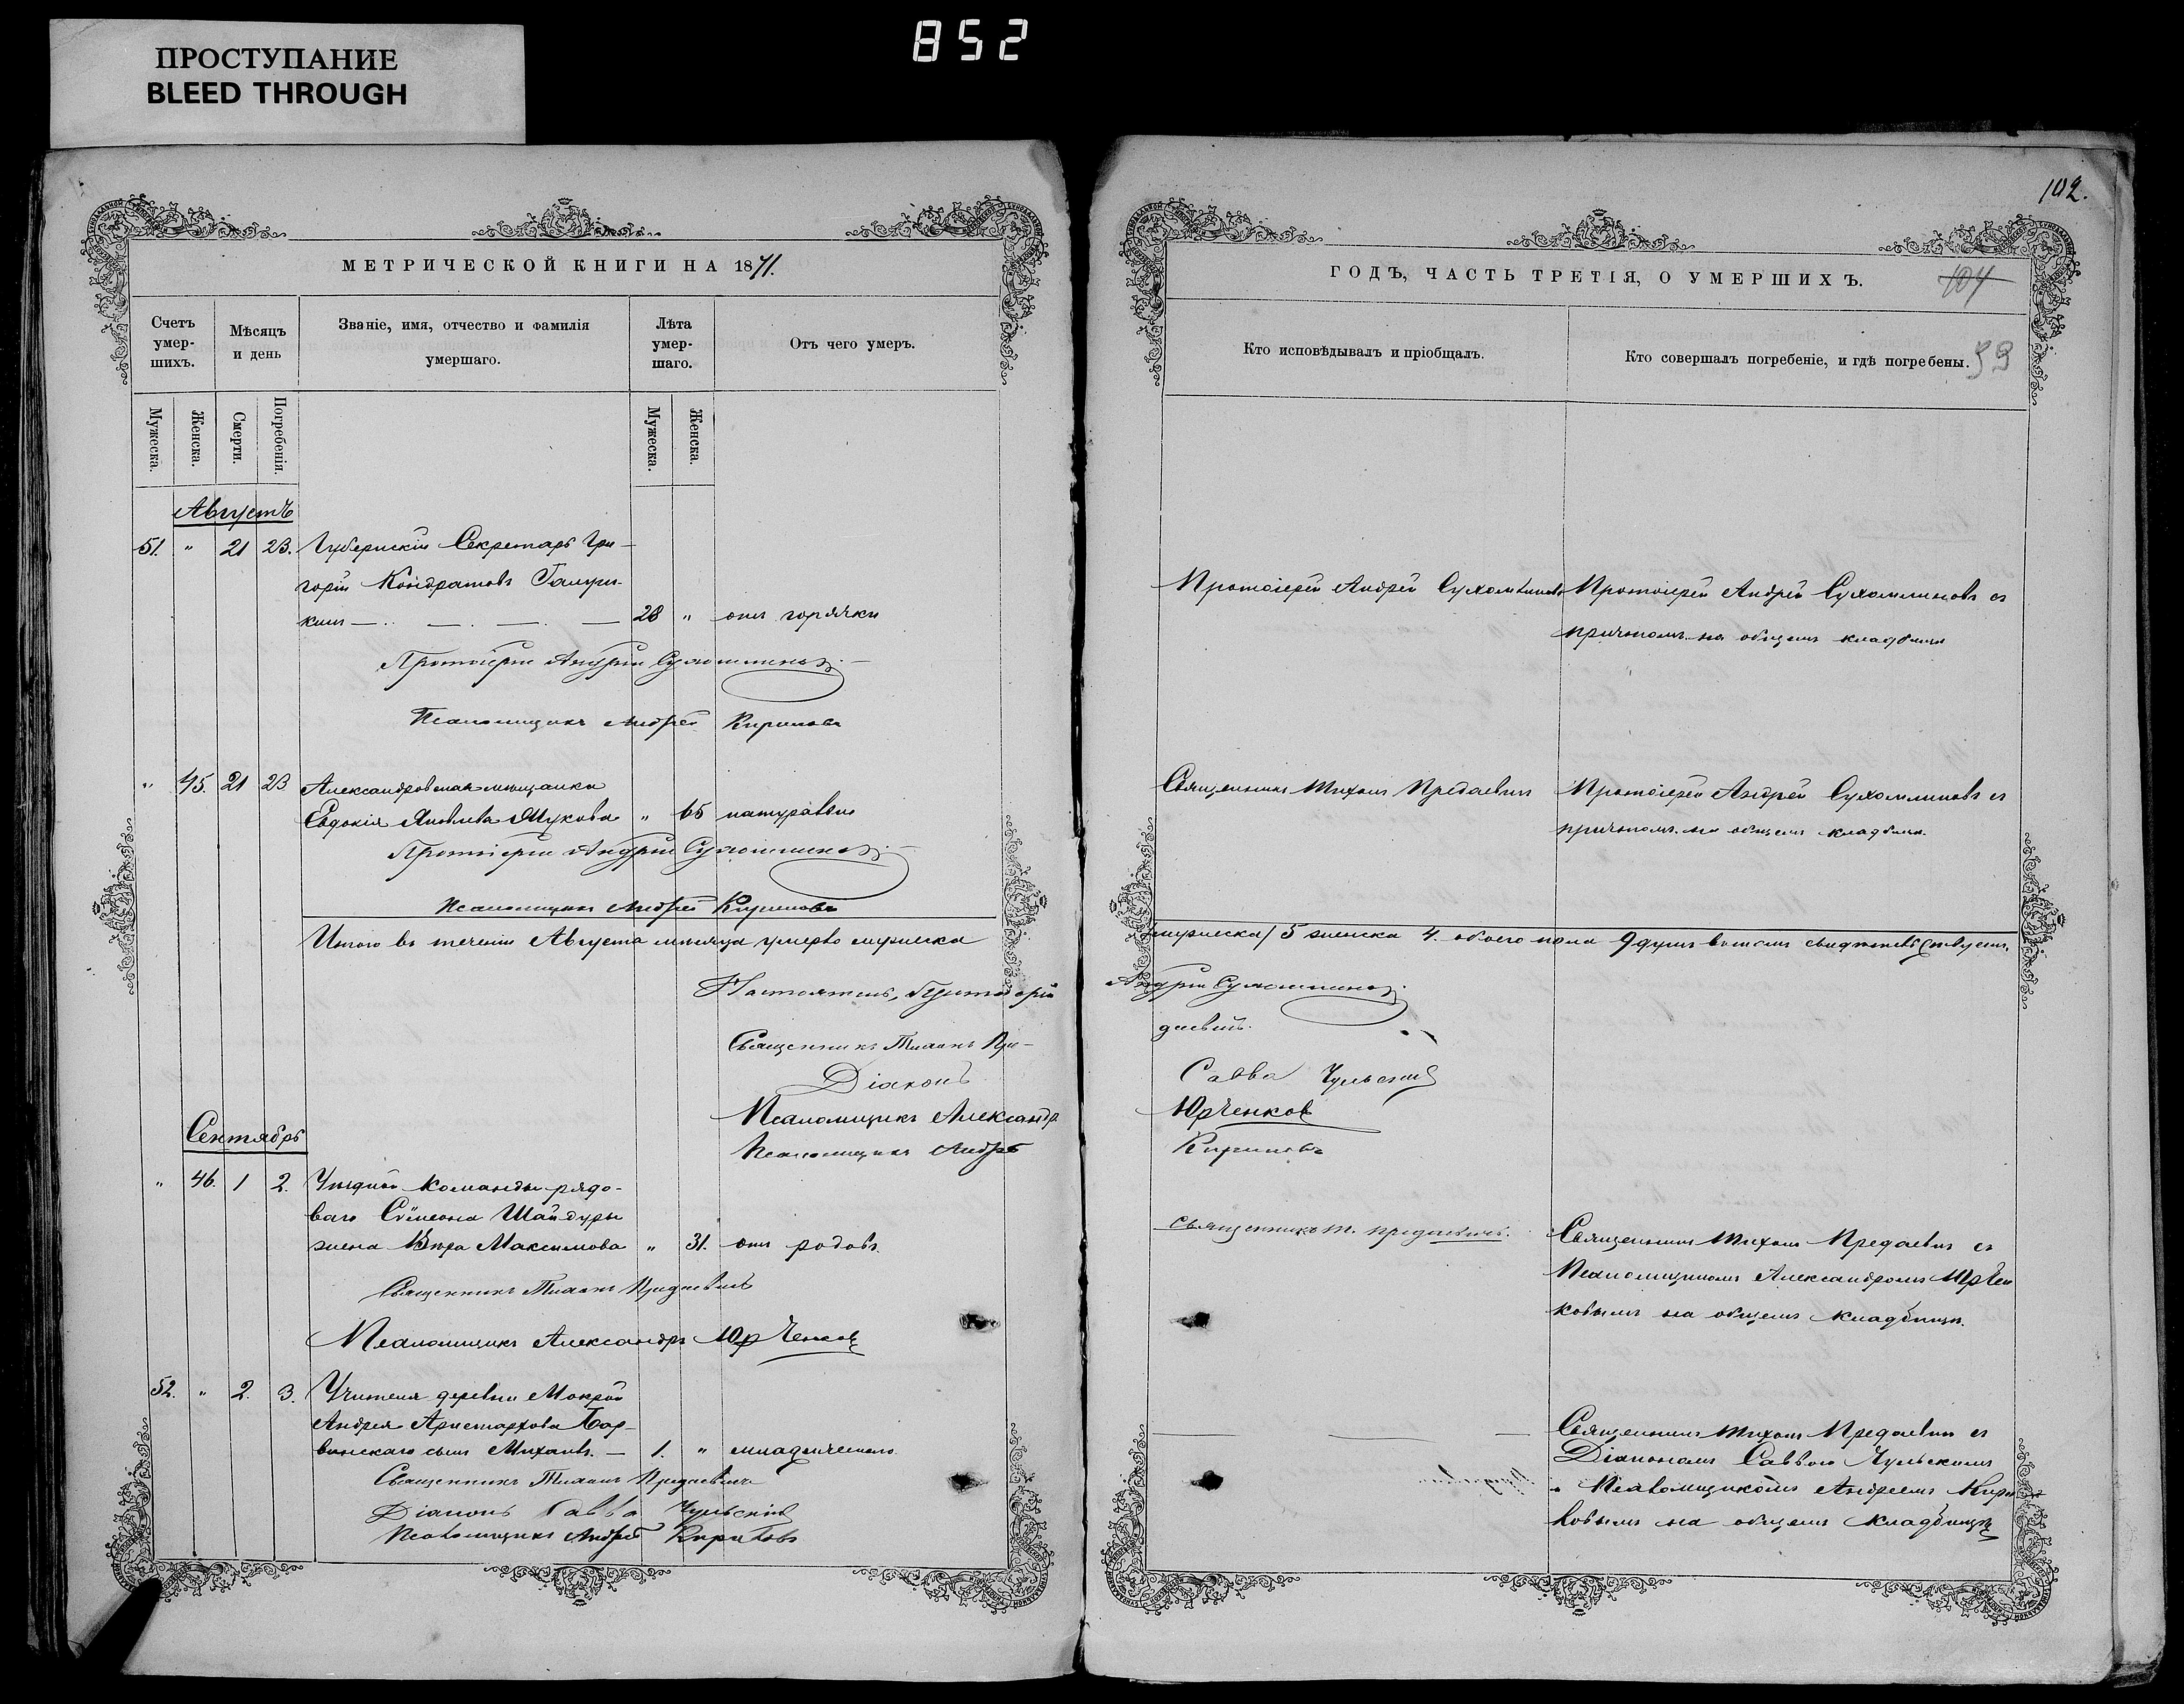 852
ПРОСТУПАНИЕ
BLEED THROUGH
МЕТРИЧЕСКОЙ КНИГИ НА 1871.
Счетъ умер-шихъ.
Мѣсяцъ и день
Званіе, имя, отчество и фамилія умершаго.
Лѣта умер-шаго.
Отъ чего умеръ.
Мужеска.
Женска.
Смерти.
Погребенія.
Мужеска.
Женска.
Августъ
51. " 21 23. Губернскій Секретарь Гри-
горій Кондратовъ
кинъ — 28 " отъ горячки
Протоіерей Андрей Сухомлиновъ.
Псаломщикъ Андрей Кириловъ
" 45. 21 23 Александровская мѣщанка
Евдокія Яковлева Жукова " 65 натурально
Протоіерей Андрей Сухомлиновъ.
Псаломщикъ Андрей Кириловъ
Итого въ теченіи Августа мѣсяца умерло мужеска
Настоятель, Протоіерей
Священникъ Тихонъ Пре-
Діаконъ
Псаломщикъ Александръ
Псаломщикъ Андрей
Сентябрь
" 46. 1 2. Уѣздной команды рядо-
ваго Сѵмеона Шайдуры
жена Вѣра Максимова " 31. отъ родовъ
Священникъ Тихонъ Предаевичъ
Псаломщикъ Александръ Юрченков
52. " 2. 3. Учителя деревни Мокрой
Андрея Аристархова
сынъ Михаилъ. — 1. " младенческаго
Священникъ Тихонъ Предаевичъ
Діаконъ Савва Чульскій
Псаломщикъ Андрей Кириловъ
102.
ГОДЪ, ЧАСТЬ ТРЕТІЯ, О УМЕРШИХЪ.
104
Кто исповѣдывалъ и пріобщалъ.
Кто совершалъ погребеніе, и гдѣ погребены.
99
Протоіерей Андрей Сухомлиновъ
Протоіерей Андрей Сухомлиновъ съ
причтомъ на общемъ кладбищѣ
Священникъ Тихонъ Предаевичъ
Протоіерей Андрей Сухомлиновъ съ
причтомъ на общемъ кладбищѣ.
(мужеска) 5 женска 4. обоего пола 9 душъ въ томъ свидѣтельствуемъ.
Андрей Сухомлиновъ.
даевичъ.
Савва Чульскій
Юрченков
Кириловъ
Священникъ Т. Предаевичъ.
Священникъ Тихонъ Предаевичъ съ
Псаломщикомъ Александромъ Юрчен
ковымъ на общемъ кладбищѣ.
Священникъ Тихонъ Предаевичъ съ
Діакономъ Саввою Чульскимъ
и Псаломщикомъ Андреемъ Кири
ловымъ на общемъ кладбищѣ